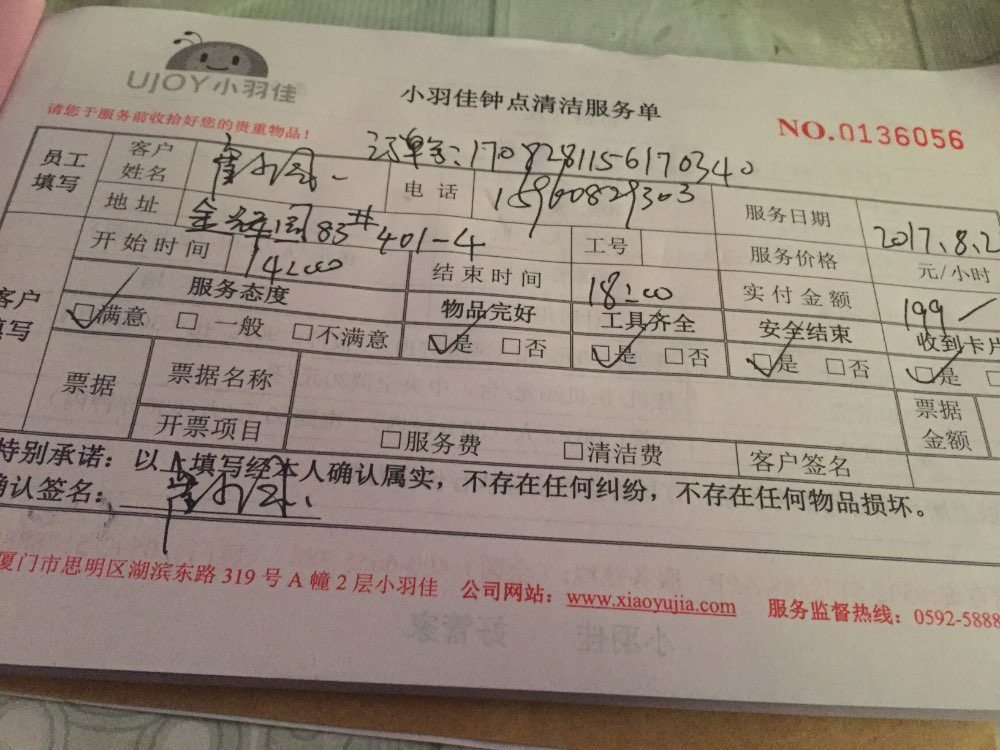 UJOY小羽佳
小羽佳钟点清洁服务单
NO.0136056
请您于服务前收拾好您的贵重物品！
订单号：1708281156170340
员工填写 客户姓名 电话 15960829303 服务日期 2017.8.2
地址 83# 401-4 工号 服务价格 元/小时
客户填写 开始时间 14:00 结束时间 18:00 实付金额 199
服务态度 物品完好 工具齐全 安全结束 收到卡片
☑满意 □一般 □不满意 ☑是 □否 ☑是 □否 ☑是 □否 ☑是 □
票据 票据名称 票据金额
开票项目 □服务费 □清洁费 客户签名
特别承诺：以上填写经本人确认属实，不存在任何纠纷，不存在任何物品损坏。
确认签名：
厦门市思明区湖滨东路 319 号 A 幢 2 层小羽佳 公司网站：www.xiaoyujia.com 服务监督热线：0592-5888